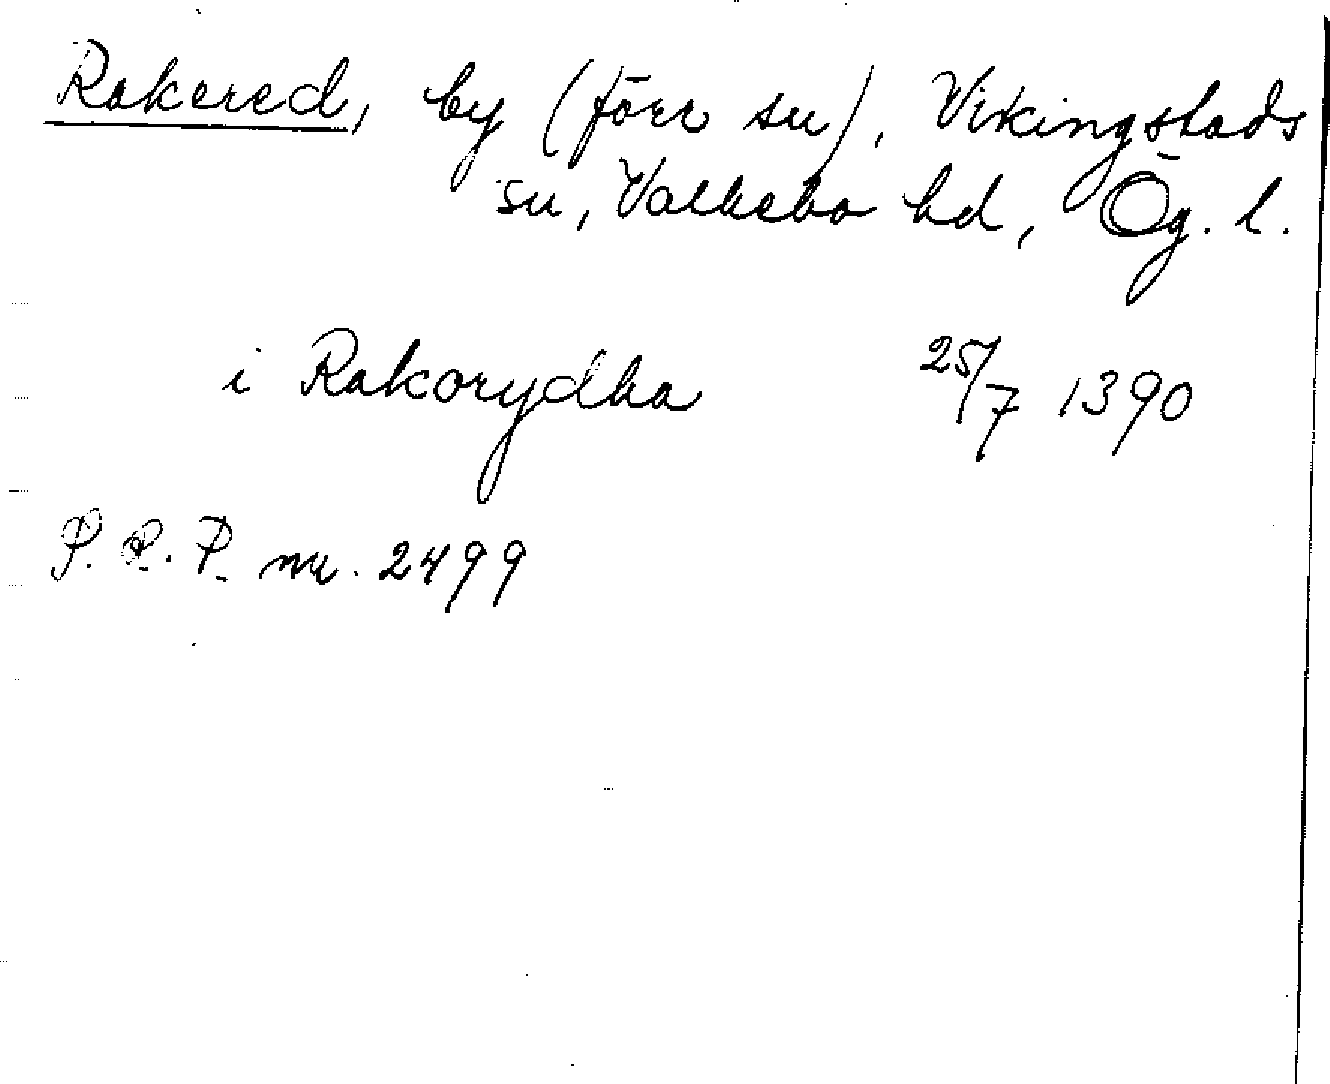 Rakered, by (förr sn), Vikingstads
sn, Valkebo hd, Ög. l.
i Rakorydha 25/7 1390
P. R. P. nr. 2499